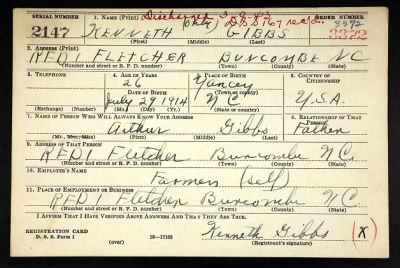 SERIAL NUMBER 1. NAME (Print) Discharged ORDER NUMBER
2147 KENNETH (only) GIBBS 3372 3372
(First) (Middle) (Last)
2. ADDRESS (Print)
RED1 FLETCHER BUNCOMBE NC
(Number and street or R. F. D. number) (Town) (County) (State)
3. TELEPHONE 4. AGE IN YEARS 5. PLACE OF BIRTH 6. COUNTRY OF CITIZENSHIP
26 Yancey
DATE OF BIRTH (Town or county)
July 29 1914 N C U.S.A.
(Exchange) (Number) (Mo.) (Day) (Yr.) (State or country)
7. NAME OF PERSON WHO WILL ALWAYS KNOW YOUR ADDRESS 8. RELATIONSHIP OF THAT PERSON
Arthur Gibbs Father
(Mr., Mrs., Miss) (First) (Middle) (Last)
9. ADDRESS OF THAT PERSON
RED1 Fletcher Buncombe N C.
(Number and street or R. F. D. number) (Town) (County) (State)
10. EMPLOYER'S NAME
Farmer (self)
11. PLACE OF EMPLOYMENT OR BUSINESS
RED1 Fletcher Buncombe N C.
(Number and street or R. F. D. number) (Town) (County) (State)
I AFFIRM THAT I HAVE VERIFIED ABOVE ANSWERS AND THAT THEY ARE TRUE.
REGISTRATION CARD
D. S. S. Form 1 16—17105 Kenneth Gibbs (X)
(over) (Registrant's signature)